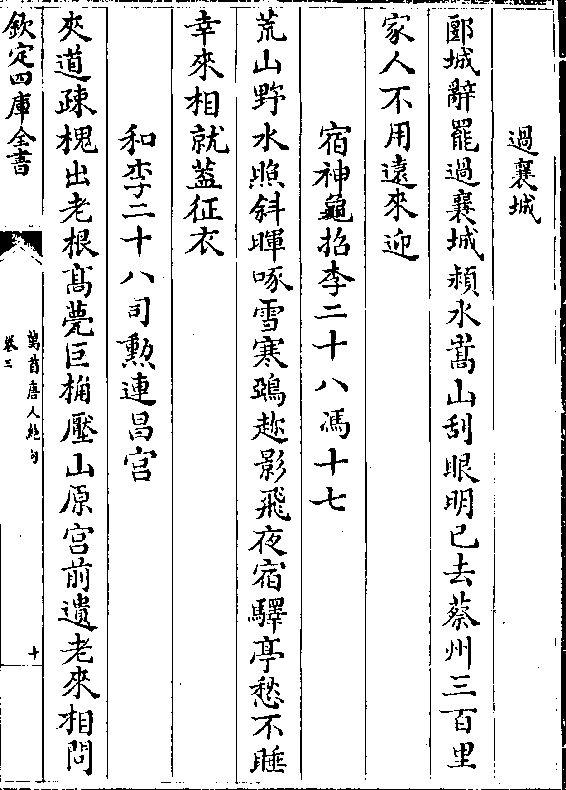 過襄城
郾城辭罷過襄城頴水嵩山刮眼明已去蔡州三百里
家人不用遠來迎
宿神龜招李二十八馮十七
荒山野水照斜暉啄雪寒鵶趂影飛夜宿驛亭愁不睡
幸來相就葢征衣
和李二十八司勲連昌宫
夾道疎槐出老根髙甍巨桷壓山原宫前遺老來相問
欽定四庫全書
萬首唐人絶句
卷三
十